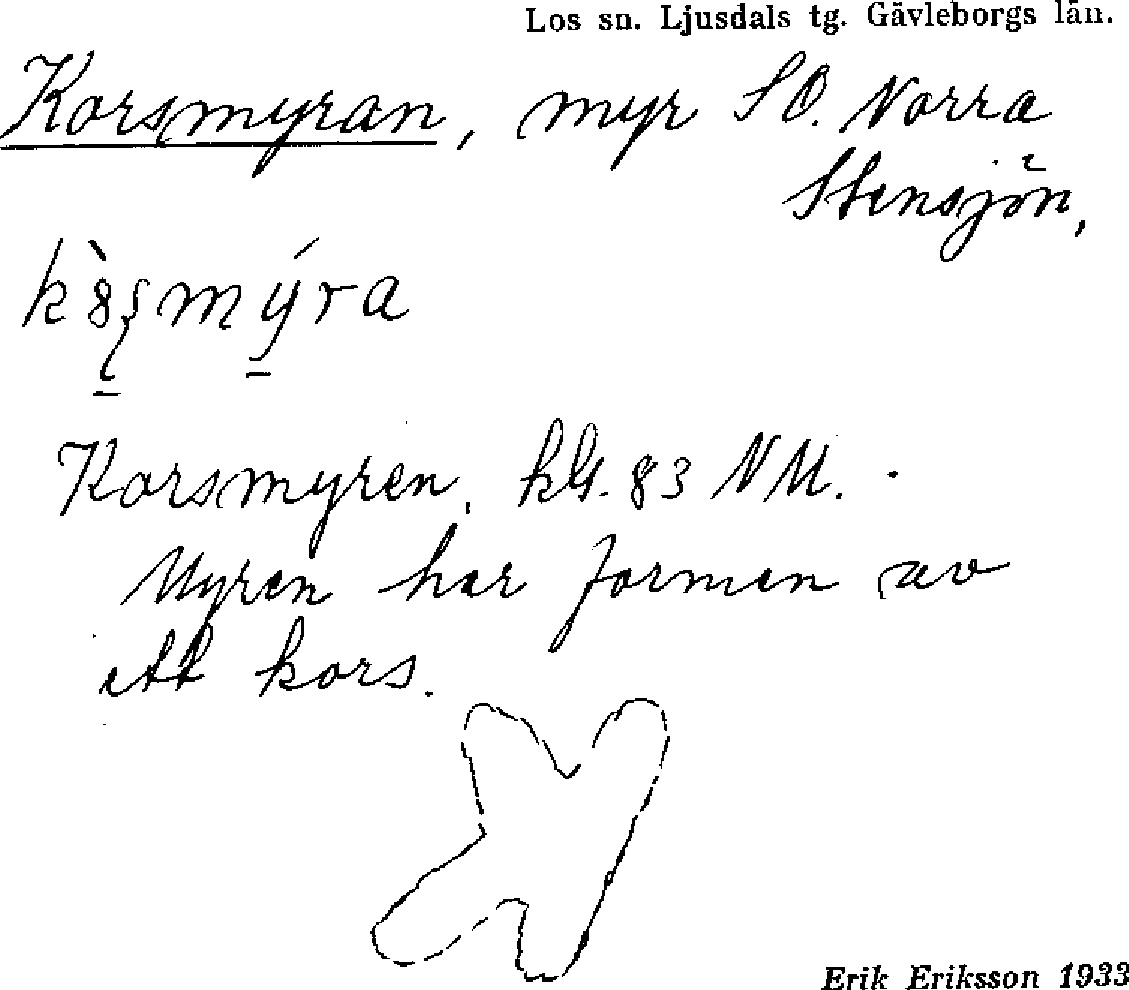 Los sn. Ljusdals tg. Gävleborgs län.
Korsmyran, myr SO. Norra
Stensjön,
Korsmyren, kbl. 83 NM.
Myren har formen av
ett kors.
Erik Eriksson 1933